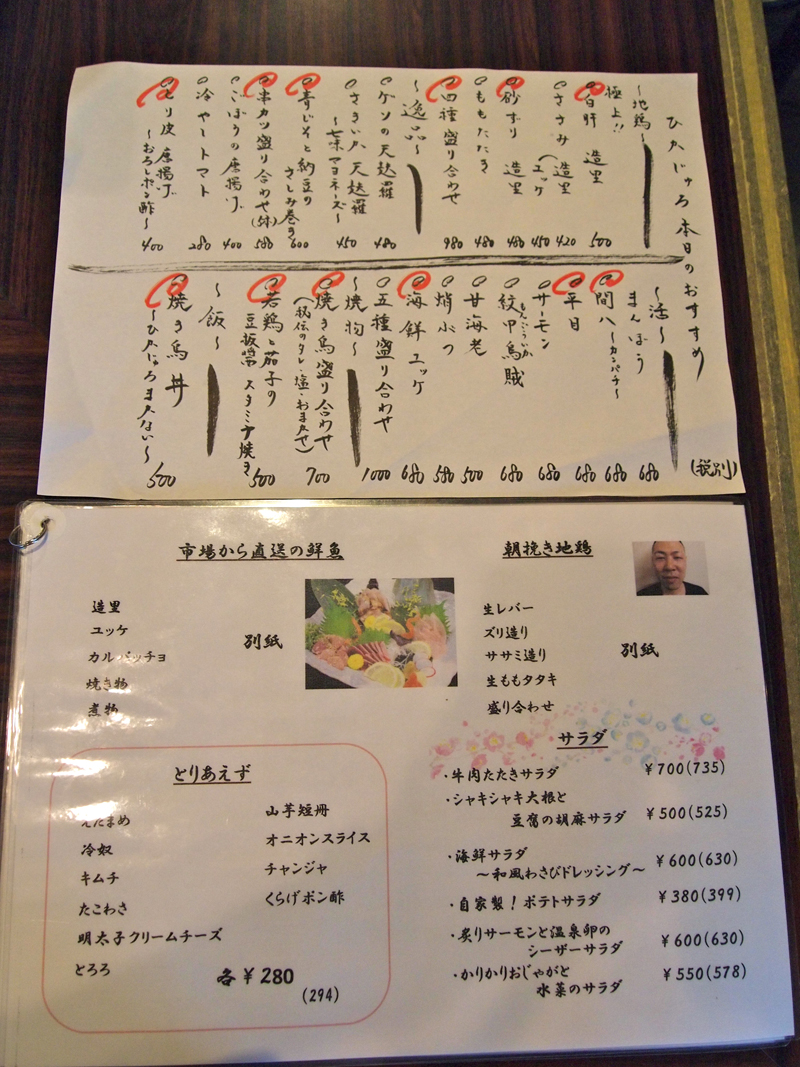 ひかじゅろ 本日のおすすめ
(税別)
〜地鶏〜
極上!!
白肝 造里 500
ささみ 造里 420
(ユッケ 450
砂ずり 造里 480
ももたたき 480
四種盛り合わせ 980
〜逸品〜
ゲソの天麩羅 480
さきいか 天麩羅
〜七味マヨネーズ〜 450
青じそと納豆の
さしみ巻き 600
串カツ盛り合わせ(5本) 580
ごぼうの唐揚げ 400
冷やしトマト 280
とり皮 唐揚げ
〜おろしポン酢〜 400
〜活〜
まんぼう 680
間八〜カンパチ〜 680
平目 680
サーモン 680
紋甲烏賊 680
もんごういか
甘海老 500
蛸ぶつ 580
海鮮ユッケ 680
五種盛り合わせ 1000
〜焼物〜
焼き鳥盛り合わせ 700
(秘伝のタレ・塩・おまかせ)
若鶏と茄子の
豆板醤 スタミナ焼き 500
〜飯〜
焼き鳥丼 500
市場から直送の鮮魚
造里
ユッケ
カルパッチョ
焼き物
煮物
別紙
朝挽き地鶏
生レバー
ズリ造り
ササミ造り
生ももタタキ
盛り合わせ
別紙
とりあえず
えだまめ
冷奴
キムチ
たこわさ
明太子クリームチーズ
とろろ
山芋短冊
オニオンスライス
チャンジャ
くらげポン酢
各¥280
(294)
サラダ
・牛肉たたきサラダ ¥700(735)
・シャキシャキ大根と
豆腐の胡麻サラダ ¥500(525)
・海鮮サラダ ¥600(630)
〜和風わさびドレッシング〜
・自家製!ポテトサラダ ¥380(399)
・炙りサーモンと温泉卵の
シーザーサラダ ¥600(630)
・かりかりおじゃがと
水菜のサラダ ¥550(578)